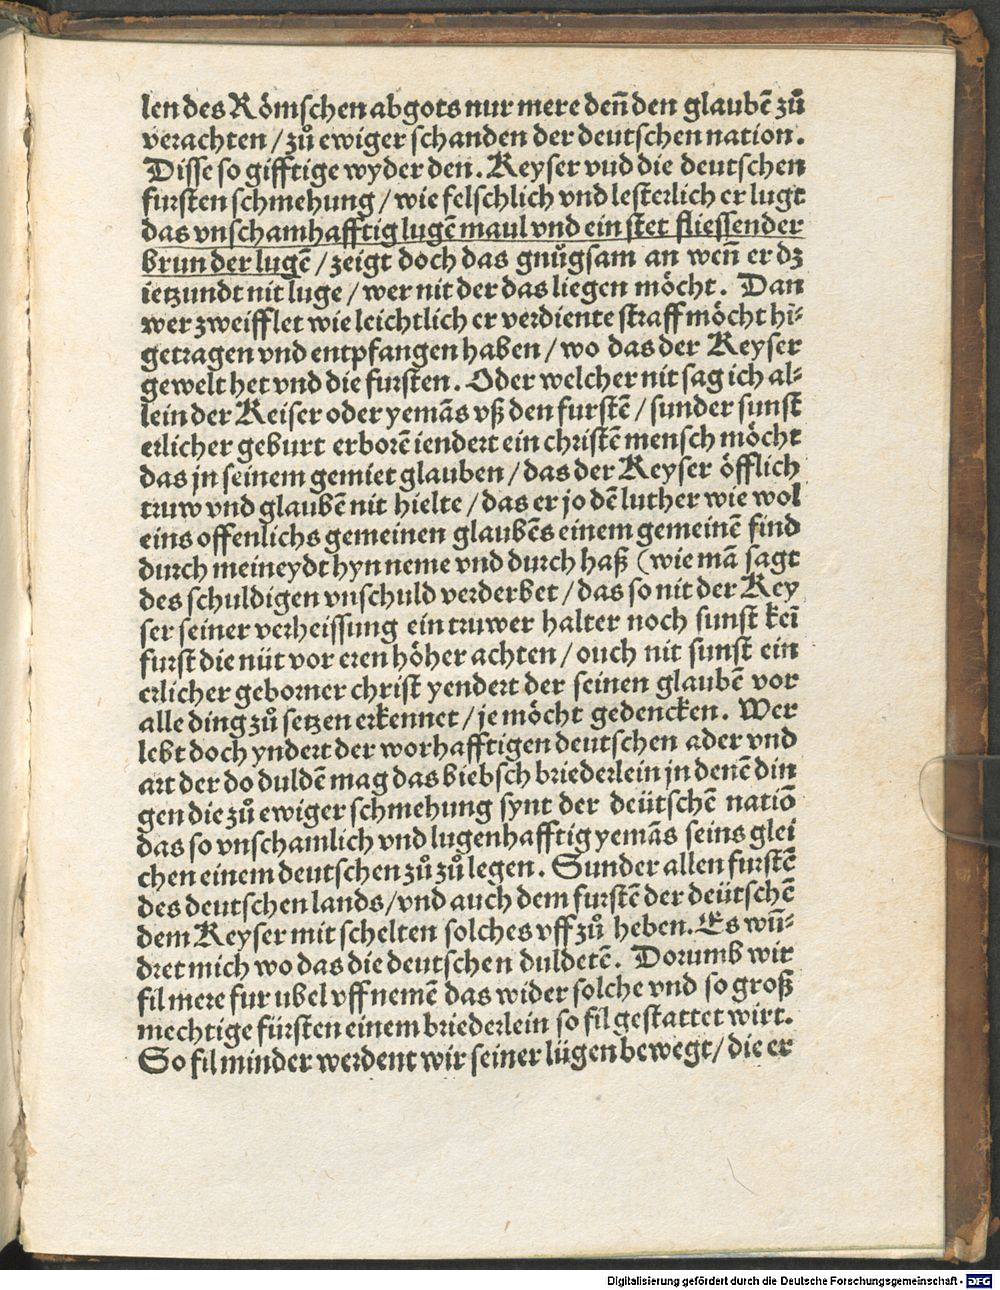 len des Römschen abgots nur mere deñ den glaubē zů
verachten / zů ewiger schanden der deutschen nation.
Disse so gifftige wyder den. Keyser vud die deutschen
fursten schmehung / wie felschlich vnd lesterlich er lugt
das vnschamhafftig lugē maul vnd ein stet fliessender
brun der lugē / zeigt doch das gnůgsam an weñ er dz
ietzundt nit luge / wer nit der das liegen möcht. Dan
wer zweifflet wie leichtlich er verdiente straff möcht hi⸗
getragen vnd entpfangen haben / wo das der Keyser
gewelt het vnd die fursten. Oder welcher nit sag ich al⸗
lein der Keiser oder yemās vß den furstē / sunder sunst
erlicher geburt erborē iendert ein christē mensch möcht
das jn seinem gemiet glauben / das der Keyser öfflich
truw vnd glaubē nit hielte / das er jo dē luther wie wol
eins offenlichs gemeinen glaubēs einem gemeinē find
durch meineydt hyn neme vnd durch haß (wie mā sagt
des schuldigen vnschuld verderbet / das so nit der Key
ser seiner verheissung ein truwer halter noch sunst kei̅
furst die nüt vor eren höher achten / ouch nit sunst ein
erlicher geborner christ yendert der seinen glaubē vor
alle ding zů setzen erkennet / je möcht gedencken. Wer
lebt doch yndert der worhafftigen deutschen ader vnd
art der do duldē mag das biebsch briederlein jn denē din
gen die zů ewiger schmehung synt der deütschē natiō
das so vnschamlich vnd lugenhafftig yemās seins glei
chen einem deutschen zů zů legen. Sunder allen furstē
des deutschen lands / vnd auch dem furstē der deütschē
dem Keyser mit schelten solches vff zů heben. Es wũ⸗
dret mich wo das die deutschen duldetē. Dorumb wir
fil mere fur ubel vff nemē das wider solche vnd so groß
mechtige fürsten einem briederlein so fil gestattet wirt.
So fil minder werdent wir seiner lügen bewegt / die er
Digitalisierung gefördert durch die Deutsche Forschungsgemeinschaft - DFG